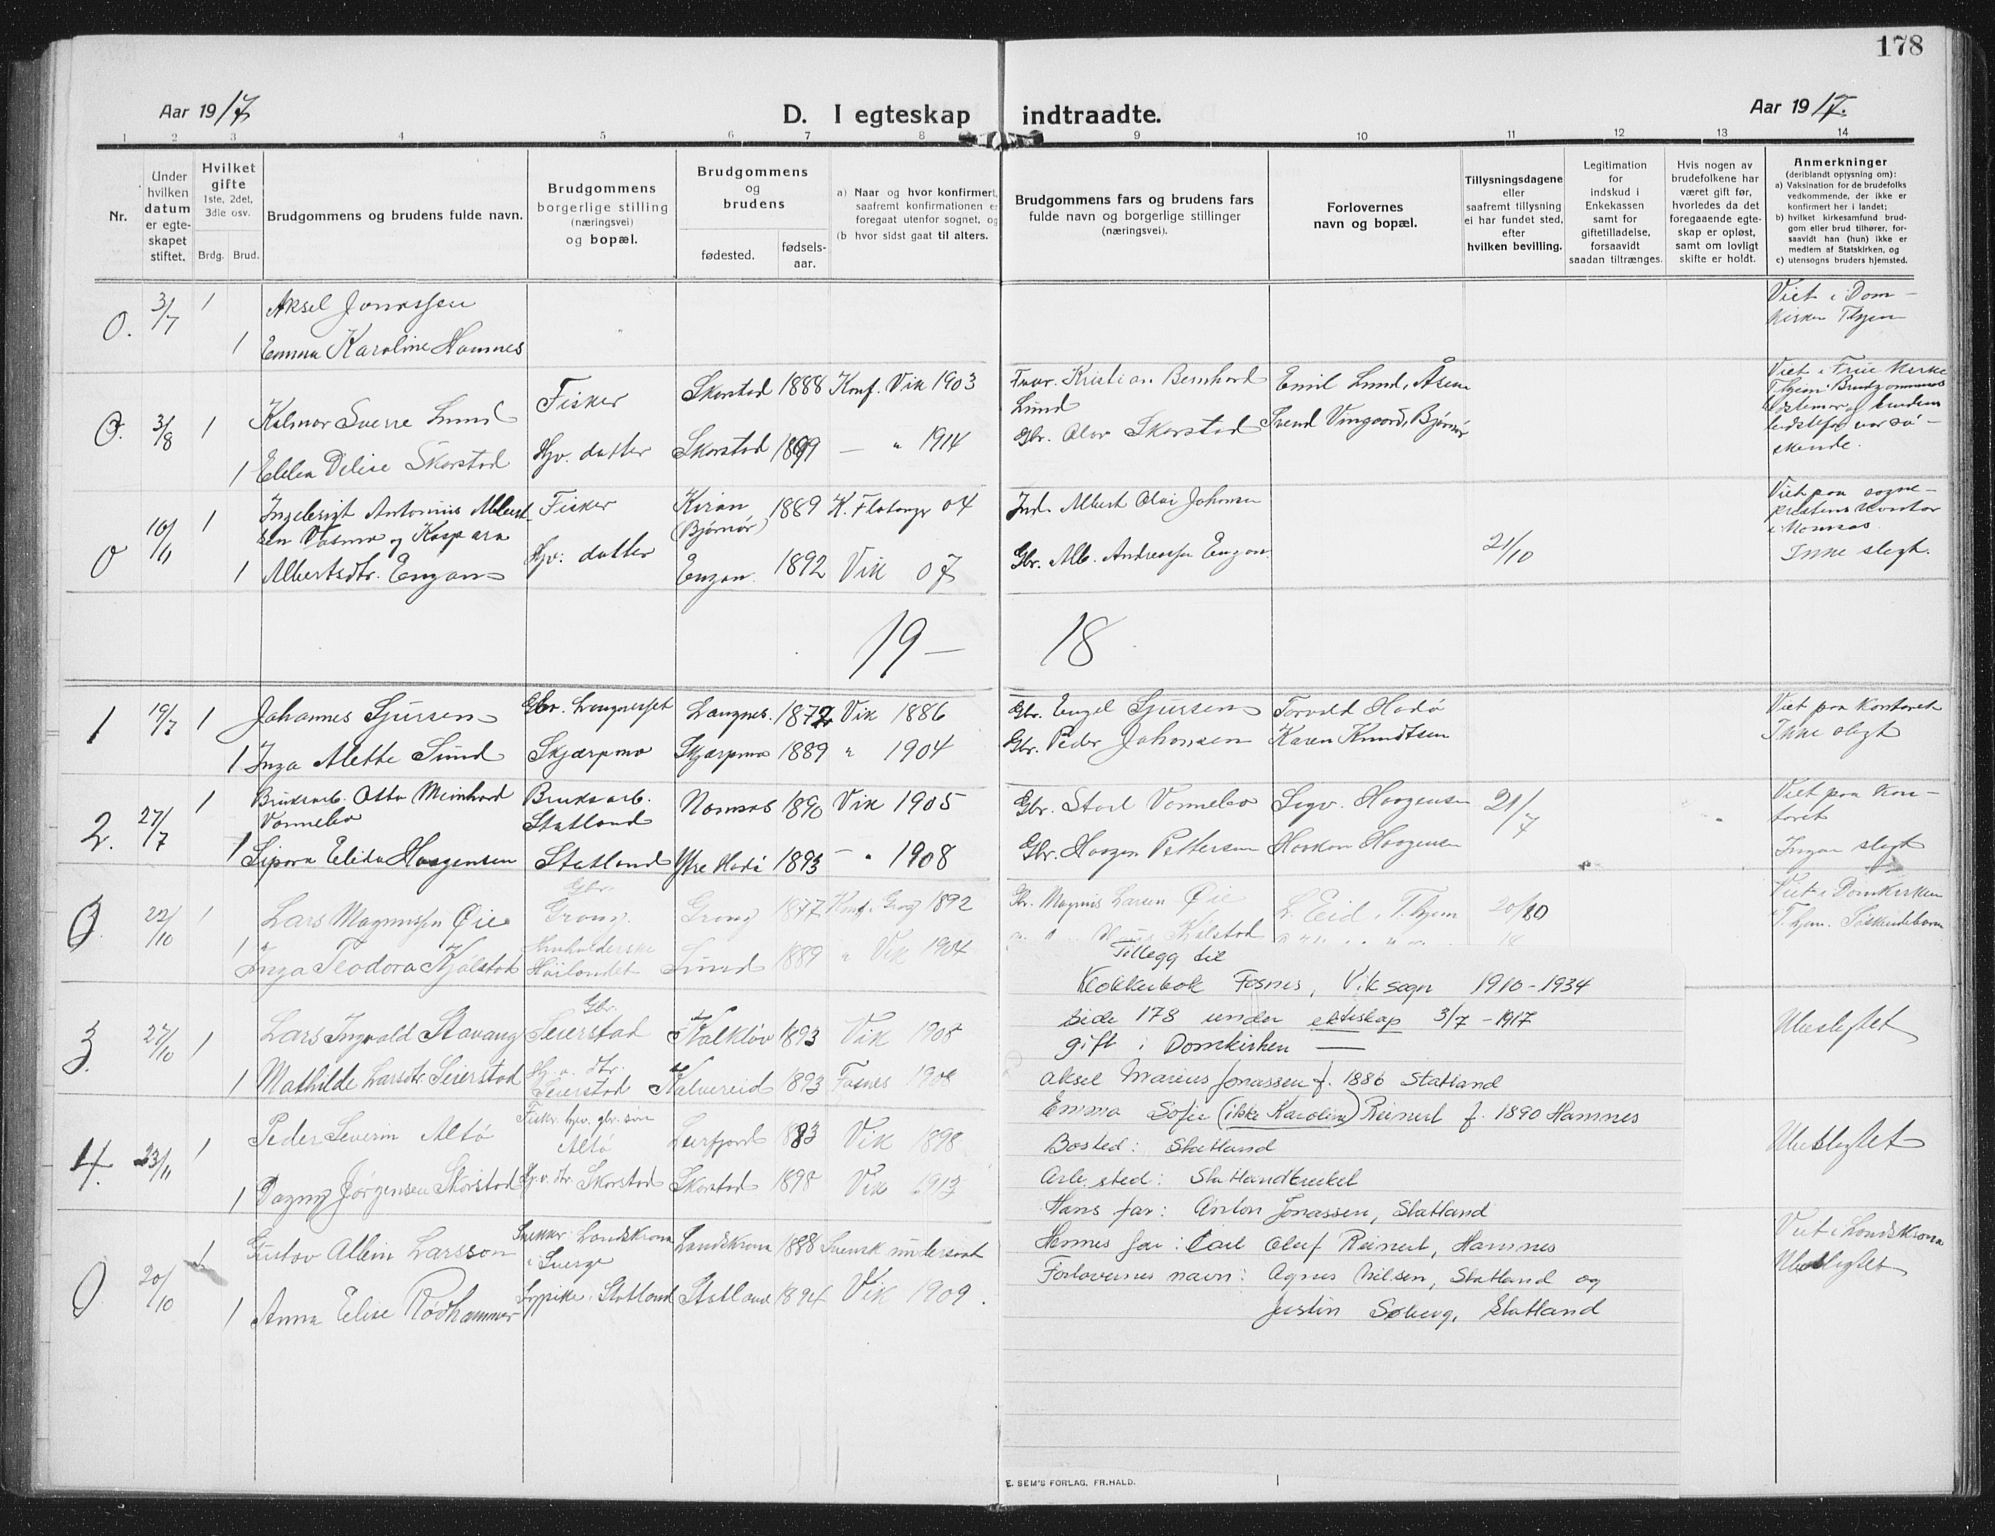 178
Aar 1917.
D. I egteskap indtraadte.
Aar 1917.
1 2 3 4 5 6 7 8 9 10 11 12 13 14
Nr.
Under
hvilken
datum
er egte-
skapet
stiftet.
Hvilket
gifte
1ste, 2det,
3die osv.
Brdg. Brud.
Brudgommens og brudens fulde navn.
Brudgommens
borgerlige stilling
(næringsvei)
og bopæl.
Brudgommens
og
brudens
fødested.
fødsels-
aar.
a) Naar og hvor konfirmert,
saafremt konfirmationen er
foregaat utenfor sognet, og
(b hvor sidst gaat til alters.
Brudgommens fars og brudens fars
fulde navn og borgerlige stillinger
(næringsvei).
Forlovernes
navn og bopæl.
Tillysningsdagene
eller
saafremt tillysning
ei har fundet sted,
efter
hvilken bevilling.
Legitimation
for
indskud i
Enkekassen
samt for
giftetilladelse,
forsaavidt
saadan tiltrænges.
Hvis nogen av
brudefolkene har
været gift før,
hvorledes da det
foregaaende egte-
skap er opløst,
samt om lovligt
skifte er holdt.
Anmerkninger
(deriblandt oplysning om):
a) Vaksination for de brudefolks
vedkommende, der ikke er
konfirmert her i landet;
b) hvilket kirkesamfund brud-
gom eller brud tilhører, for-
saavidt han (hun) ikke er
medlem af Statskirken, og
c) utensogns bruders hjemsted.
0. 3/7 1 Aksel Jonassen
1 Emma Karoline Hamnes
Viet i Dom-
kirken Thjem
0. 3/8 1 Kalmar Sverre Lund Fisker Skorstad 1888 Konf. Vik 1903
Kristian Bernhard Lund Emil Lund, Åsen
1 Ellen Delise Skorstad Hjv. datter Skorstad 1899 — " 1914
Gbr. Olav Skorstad Svend Vingaard, Bjørnør
Viet i Frue Kirke
Thjem. Brudgommens
var sø-
skende.
0 10/11 1 Ingebrigt Antonius Albert-
sen og Kaspara Fisker Kiran (Bjørnør) 1889 K. Flatanger 04
Ind. Albert Olai Johansen
1 Albertsdtr. Engan Hjv: datter Engan. 1892 Vik 07
Gbr. Alb. Andreassen Engan 21/10
Viet paa sogne-
prestens kontor
i Namsos.
Ikke slegt.
19— 18
1 19/7 1 Johannes Sjursen Gbr. Langnesset Langnes. 1872 Vik 1886
Gbr. Engel Sjursen Torvald Hadø
1 Inga Alette Sund Skjærpmo Skjærpmo 1889 " 1904
Gbr. Peder Johansen Karen Knudtsen
Viet paa kontoret
Ikke slegt
2. 27/7 1 Bruksarb. Otto Meinhard
Vannebo Bruksarb.
Statland Namsos 1890 Vik 1905
Gbr. Vannebo Sigv. Haagensen 21/7
1 Sipora Elida Haagensen Statland Ytre Hadø 1893 — " 1908
Gbr. Haagen Pettersen Haakon Haagensen
Viet paa kon-
toret
Ingen slegt
0. 22/10 1 Lars Magnussen Øie Gbr.
Grong Grong 1877 Konf. i Grong 1892
Gbr. Magnus Larsen Øie L. Eid, T.hjem 20/10
1 Inga Teodora Kjølstad Sund 1889 " Vik 1904
Kjølstad
Viet i Domkirken
T.hjem. Søskendebarn
3. 27/10 1 Lars Ingvald Stavang Gbr.
Seierstad 1893 Vik 1908
1 Mathilde Larsdtr. Seierstad Seierstad Kalvereid 1893 Fosnes 1908
Ubeslegtet
4. 23/11 1 Peder Severin Altø Fisker, gbr. søn
Altø Leirfjord 1883 Vik 1898
1 Dagny Jørgensen Skorstad Hv. dtr. Skorstad Skorstad 1898 Vik 1913
Ubeslegtet
0 20/10 1 Gustav Albin Larsson Landskrona
i Sverge Landskrona 1888 Svensk undersaat
1 Anna Elise Rødhammer Statland Statland 1894 Vik 1909.
Viet i Landskrona
Ubeslegtet
Tillegg til
Klokkerbok Fosnes, Vik sogn 1910-1934
side 178 under ekteskap 3/7 - 1917
gift i Domkirken —
Aksel Marius Jonassen f. 1886 Statland
Emma Sofie (ikke Karoline) Reinert f. 1890 Hamnes
Bosted: Statland
Arb. sted: Statlandbruket
Hans far: Anton Jonassen, Statland
Hennes far: Carl Oluf Reinert, Hamnes
Forlovernes navn: Agnes Nilsen, Statland og
Justin Soberg, Statland
E. SEM'S FORLAG, FR.HALD.